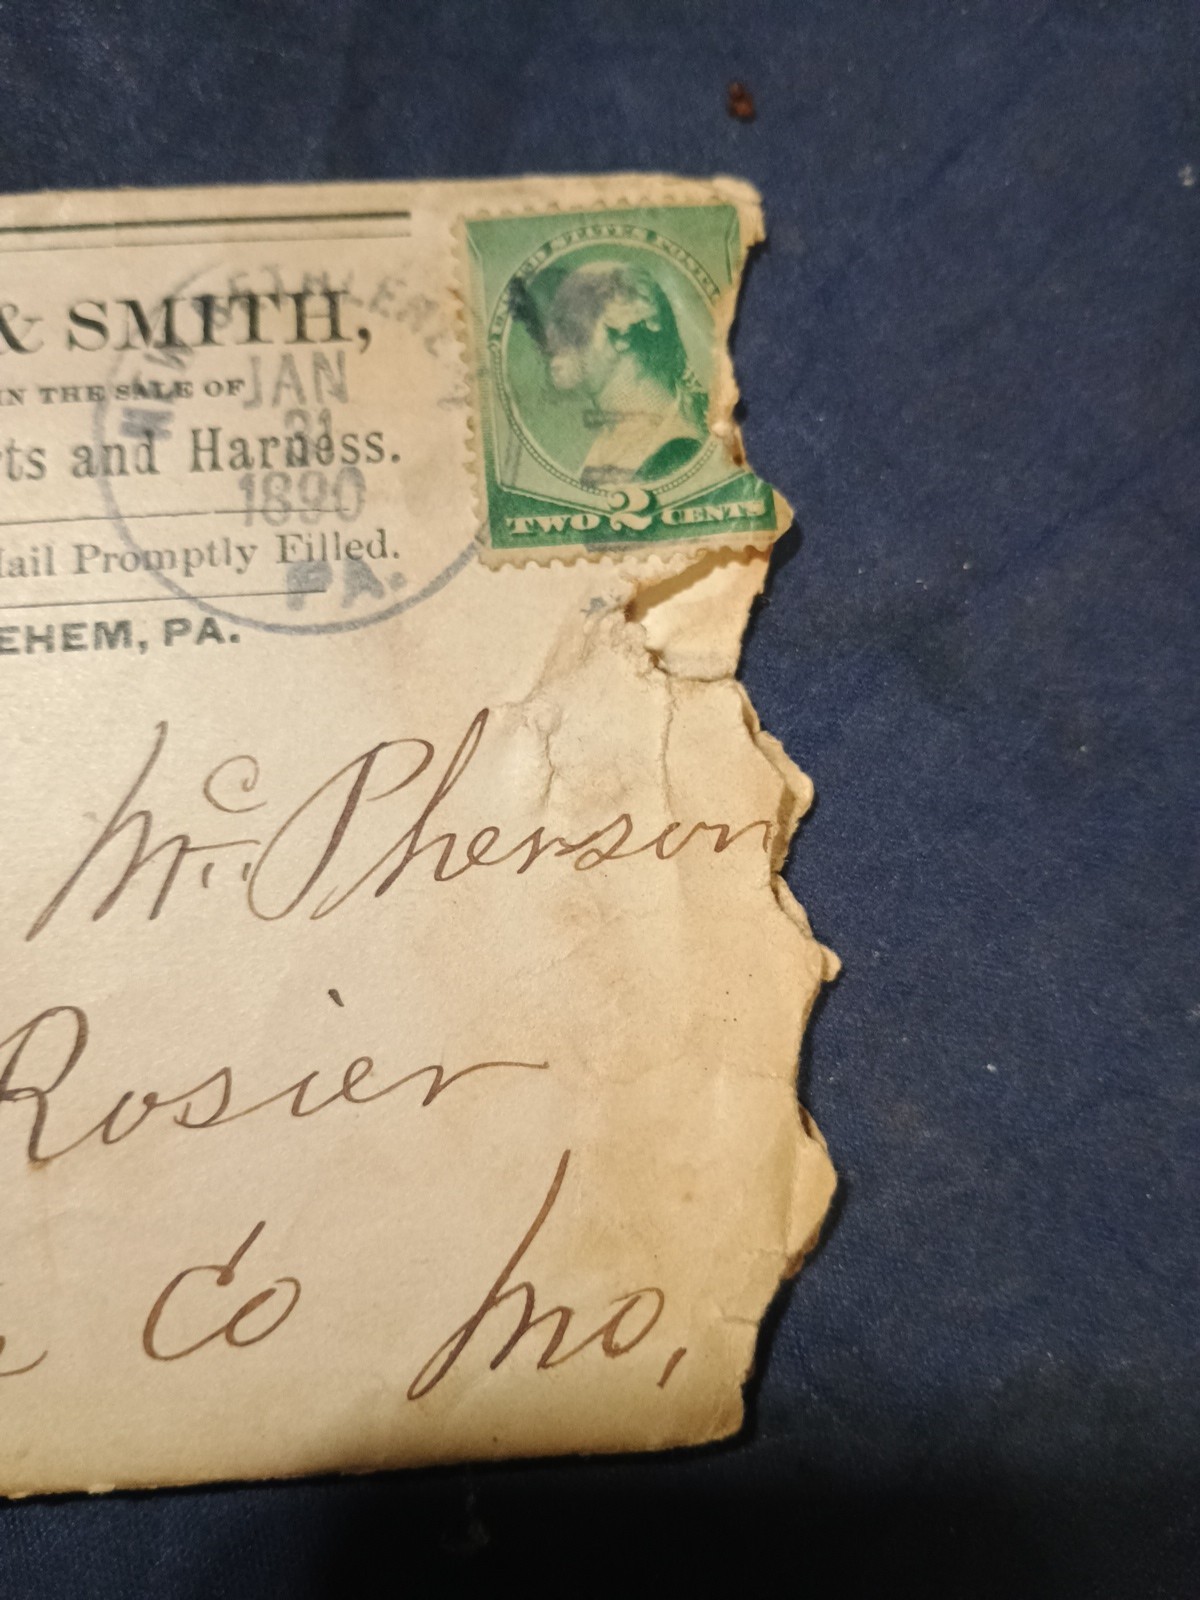 & SMITH,
IN THE SALE OF
rts and Harness.
Mail Promptly Filled.
EHEM, PA.
JAN
31
1890
PA.
UNITED STATES POSTAGE
TWO 2 CENTS
Mc Pherson
Rosier
Co Mo,